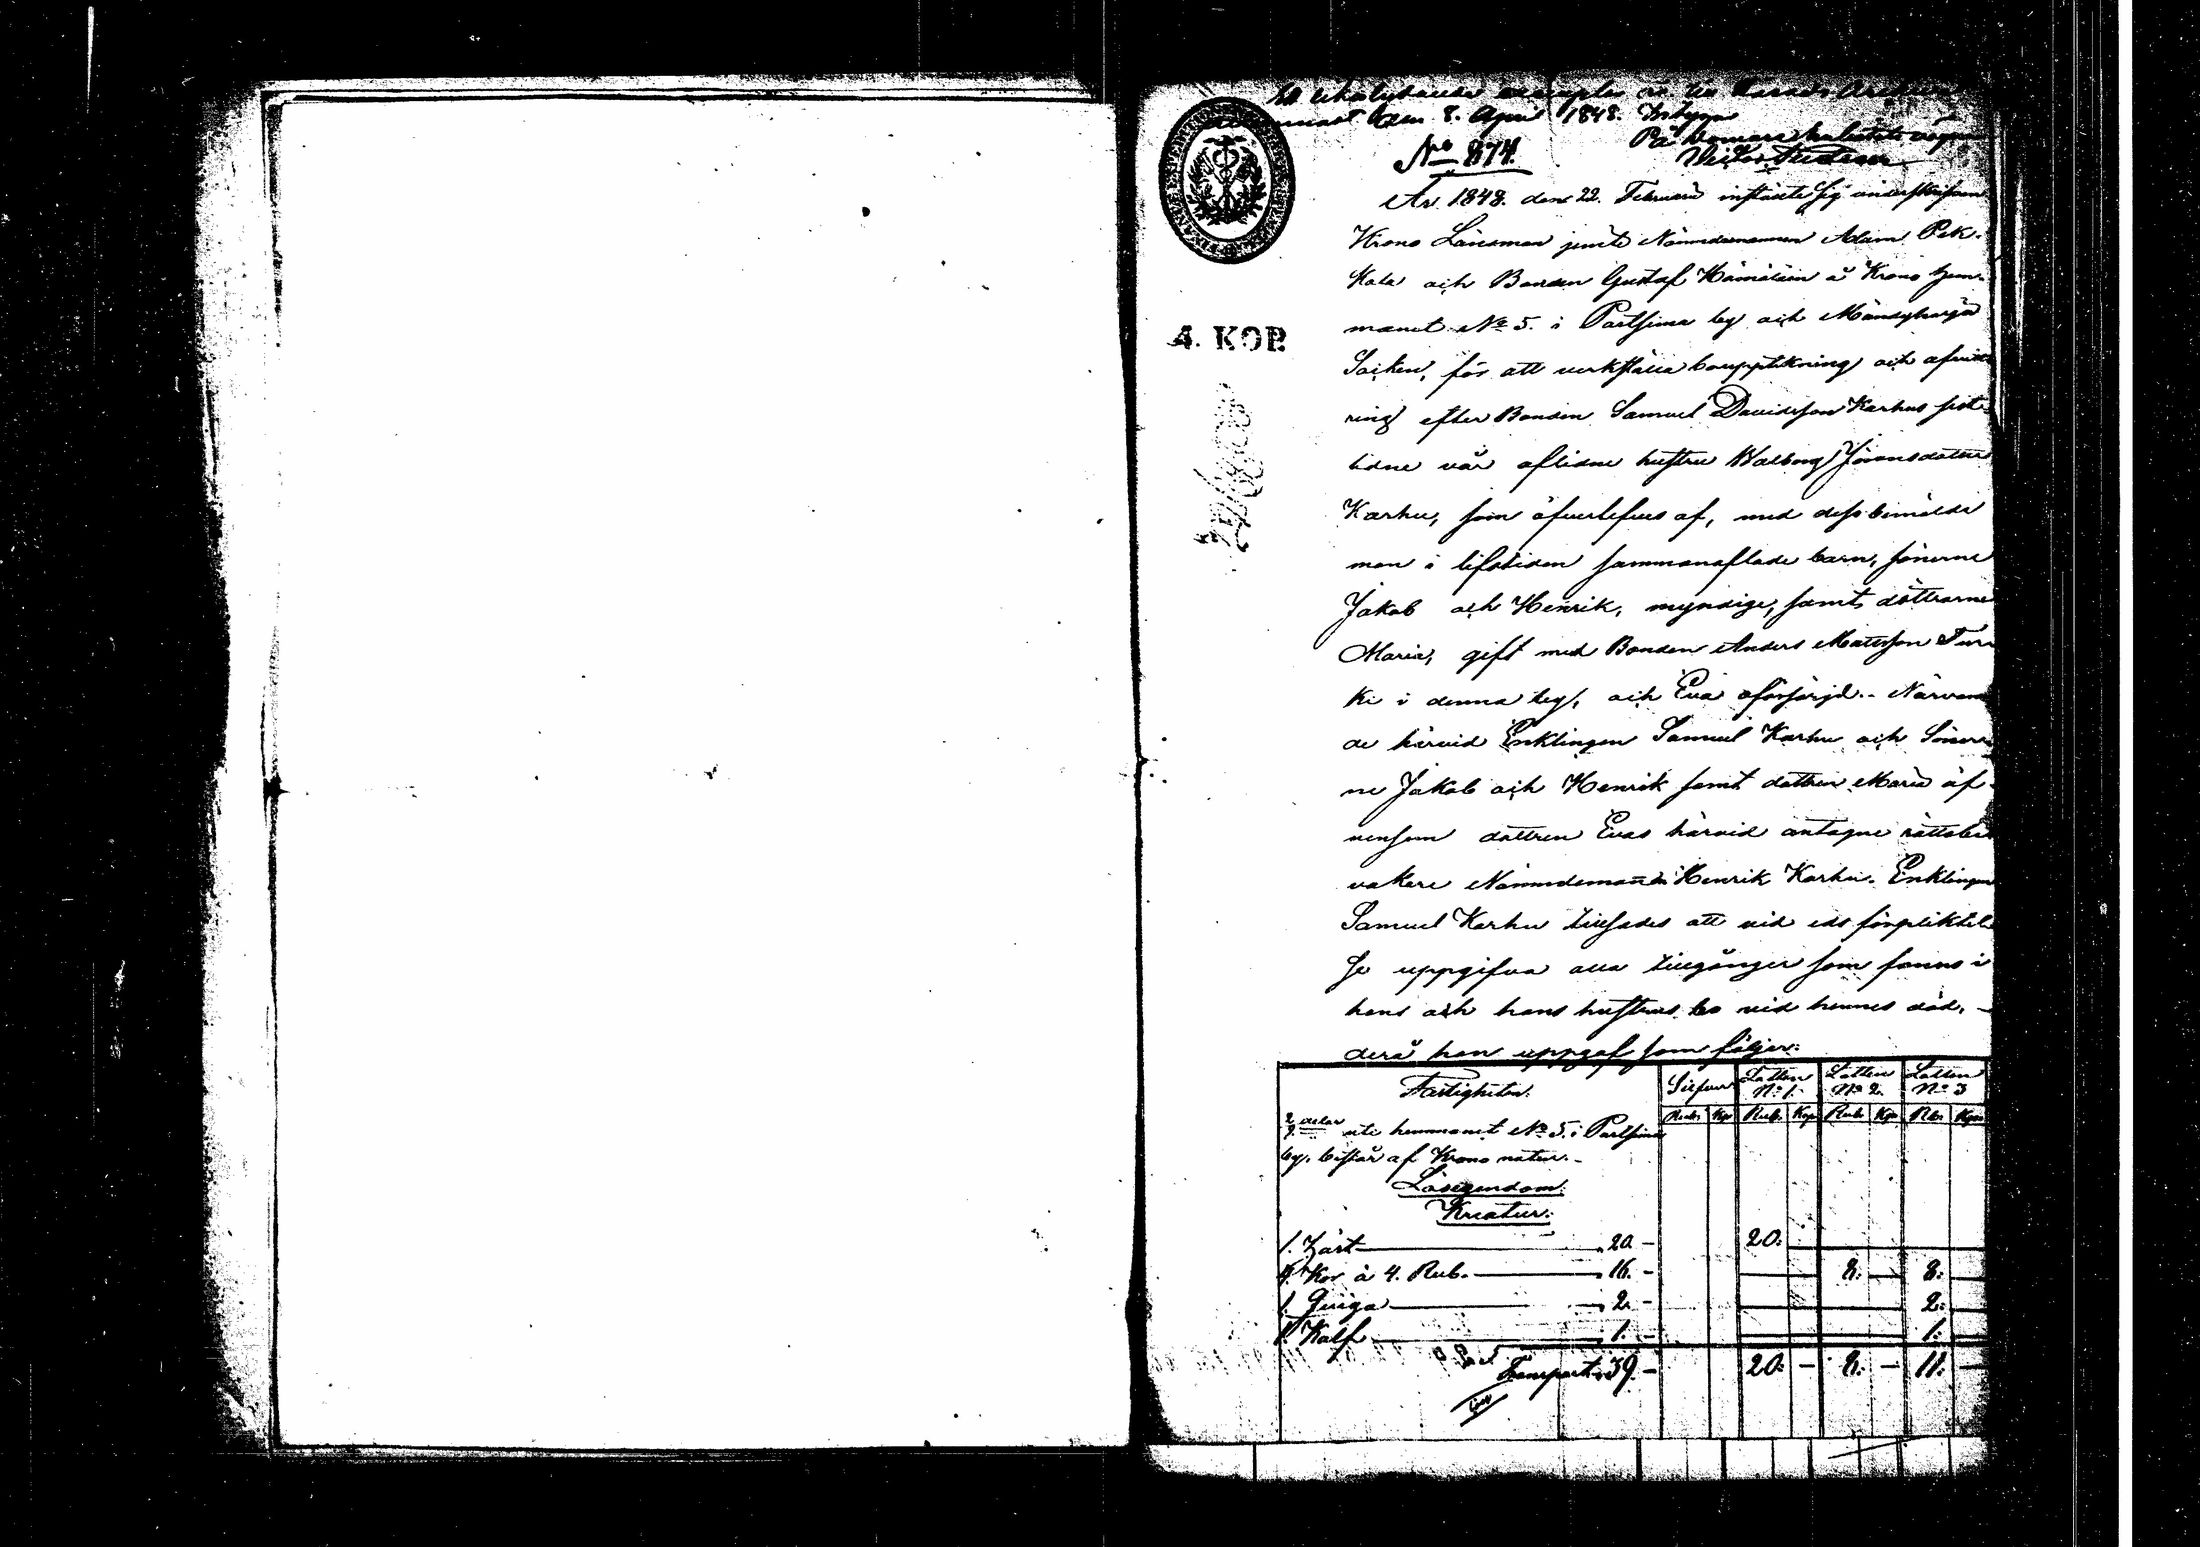 Ett likalydande exemplar är till Harads Arkivet
den 8. April 1848. Intygar
På Domare Embetets vägnar
No 874.
4. KOP.
År 1848. den 22. Februarii instälte sig underskrifven
Krono Länsman jemte Nämndemannen Adam Pek-
kala och Bonden Gustaf Hämäläin å Krono hem-
manet No 5. i Partsima by och Mändyharju
Socken, för att verkställa bouppteckning och afvitt-
ring efter Bonden Samuel Davidsson Karhus sist-
lidne vår aflidne hustru Walborg Jöransdotter
Karhu, som öfverlefves af, med dess bemälde
man i lifstiden sammanaflade barn, sönerne
Jakob och Henrik, myndige, samt döttrarne
Maria, gift med Bonden Anders Matsson Tur-
ki i denna by, och Eva oförsörjd. Närvaran-
de härvid Enklingen Samuel Karhu och Söner-
ne Jakob och Henrik samt dottren Maria äf-
vensom dottren Evas härvid antagne rättsbe-
vakare Nämndemannen Henrik Karhu. Enklingen
Samuel Karhu tillsades att vid eds förpliktel-
se uppgifva alla tillgånger som fanns i
hans och hans hustrus bo vid hennes död,
derå han uppgaf som följer:
Fastigheten. Silfver Lotten No 1. Lotten No 2. Lotten No 3
Rub. Kop Rub. Kop Rub. Kop Rb. Kop
2/9 delar uti hemmanet No 5. i Partsima
by, består af Krono natur.
Lösegendom.
Kreatur.
1. Häst 20 - 20.
4. Kor à 4. Rub. 16. - 8. 8.
1. Quiga 2. - 2.
1. Kalf 1. - 1.
Transport 39 - 20. - 8. - 11. -